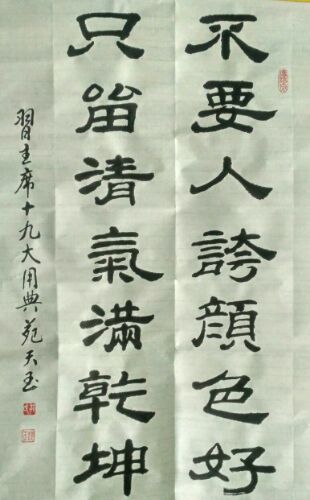 不要人誇顔色好
只留清氣滿乾坤
習主席十九大用典苑天玉